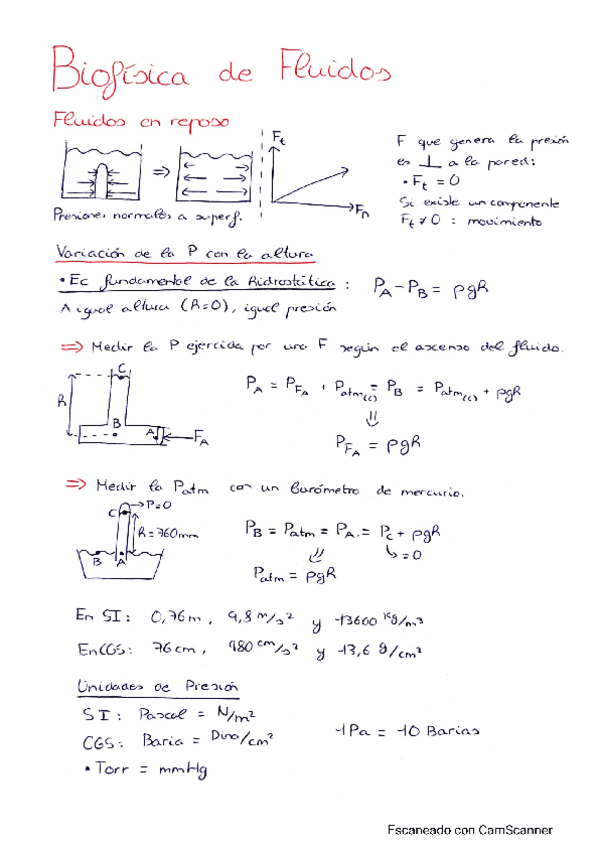 Biofísica de Fluidos
Fluidos en reposo
Presiones normales a superf.
Ft
Fn
F que genera la presión
es ⊥ a la pared:
• Ft = 0
Si existe un componente
Ft ≠ 0 : movimiento
Variación de la P con la altura
• Ec fundamental de la hidrostática : PA - PB = ρgh
A igual altura (h=0), igual presión
⇒ Medir la P ejercida por una F según el ascenso del fluido.
C
h
B
A
FA
PA = PFA + Patm(c) = PB = Patm(c) + ρgh
⇓
PFA = ρgh
⇒ Medir la Patm con un barómetro de mercurio.
C
P=0
h=760mm
B
A
PB = Patm = PA = Pc + ρgh
↳ = 0
⇓
Patm = ρgh
En SI: 0,76 m, 9,8 m/s² y 13600 Kg/m³
En CGS: 76 cm, 980 cm/s² y 13,6 g/cm³
Unidades de Presión
SI: Pascal = N/m²
CGS: Baria = Dina/cm²
1 Pa = 10 Barias
• Torr = mmHg
Escaneado con CamScanner